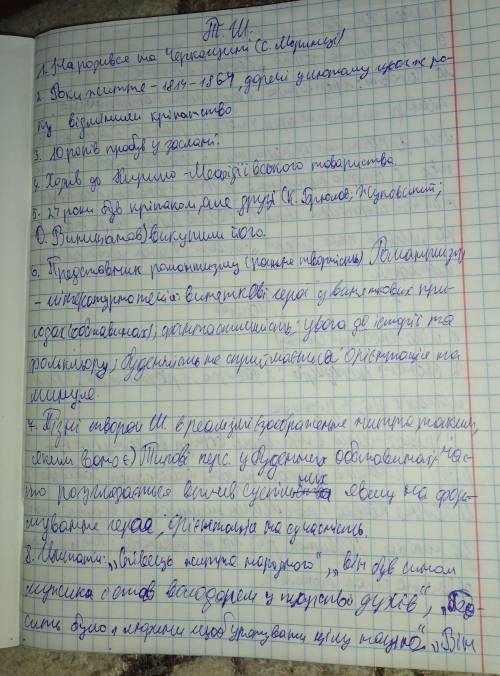 Т. Ш.
1. Народився на Черкащині (с. Моринці)
2. Роки життя - 1814 - 1861, доречі у лютому цього ж ро-
ку відмінили кріпатство
3. 10 років пробув у заслані.
4. Ходив до Кирило-Мефодіївського товариства.
5. 24 роки був кріпаком, але друзі (К. Брюлов, Жуковський,
О. Виницианов) викупили його.
6. Представник романтизму (рання творчість) Романтизм
- літературна течія виняткові герої у виняткових при-
годах (обставинах), фантастичність, увага до історії та
фольклору, буденність не сприймається орієнтація на
минуле.
7. Пізні твори Ш в реалізмі (зображення життя таким,
яким воно є) Типові перс. у буденних обставинах, час-
то розглядається вплив суспільних явищ на фор-
мування героя, орієнтація на сучасність.
8. Цитати: „Співець життя народного", „Він був сином
мужика і став володарем у царстві духів", „До-
сить було 1 людини щоб урятувати цілу націю". „Він